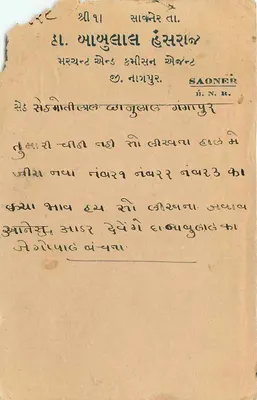 શ્રી ૧। સાવનેર તા.
ઠા. બાબુલાલ હંસરાજ
મરચન્ટ એન્ડ કમીસન એજન્ટ
જી. નાગપુર.
SAONER
B. N. R.
ગંગાપુર
તુમારી ચીઠી નહી સો લીખના હાલ મે
જીરા નવા નંબર૧ નંબર૨ નંબર૩ કા
ક્યા ભાવ હય સો લીખના જવાબ
આનેસુ આડર દેવેંગે દા બાબુલાલ કા
જે ગોપાલ બંચના